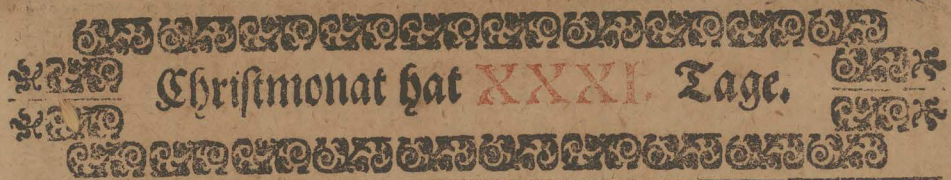 Chriſtmonat hat XXXI. Tage.